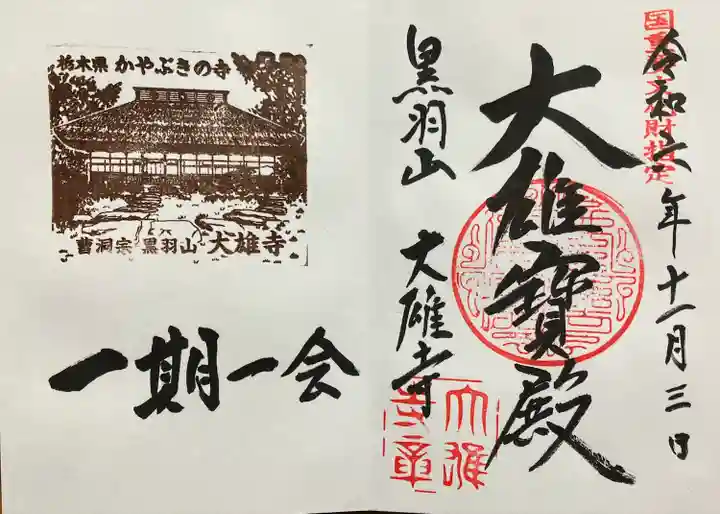 国重要文化財指定
令和六年十一月三日
大雄寶殿
黒羽山 大雄寺
大雄寺章
栃木県 かやぶきの寺
曹洞宗 黒羽山 大雄寺
一期一会